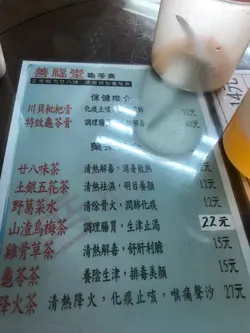 善福堂 龜苓膏
保健推介
川貝枇杷膏 化痰止咳 32元
特效龜苓膏 調理腸 解毒 40元
廿八味茶 清熱解毒，消暑散熱 12元
土銀五花茶 清熱祛濕，明目養顏 12元
野葛菜水 清除骨火，潤肺化痰
山渣烏梅茶 調理腸胃，生津止渴 22元
雞骨草茶 清熱解毒，舒肝利膽 15元
龜苓茶 養陰生津，排毒美顏 15元
降火茶 清熱降火，化痰止咳，喉痛聲沙 27元